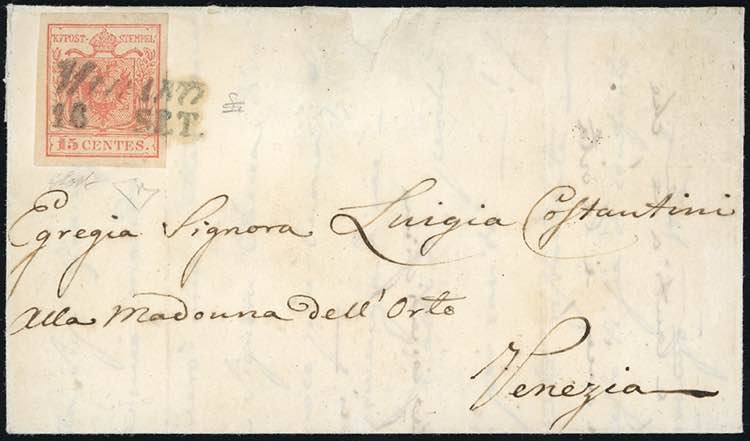 KK POST-STEMPEL
16 SET.
15 CENTES.
Egregia Signora Luigia Costantini
alla Madonna dell'Orto
Venezia